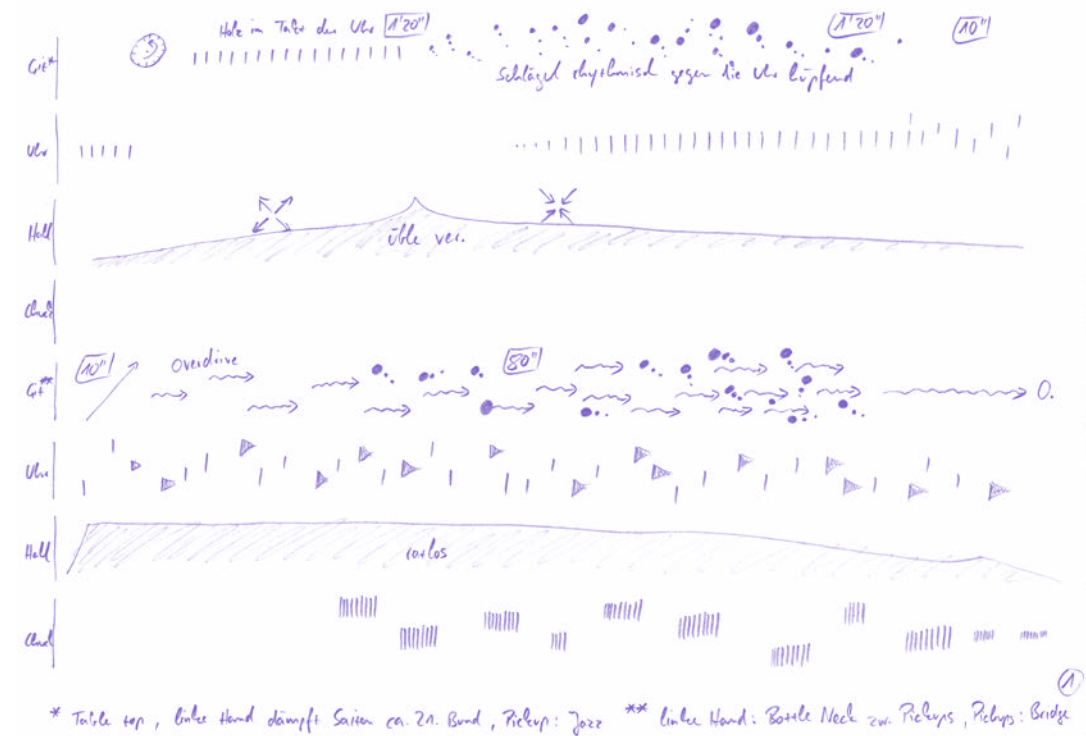 Holz im Takt der Uhr 1'20" 1'20" 10"
Git*
Schlägel rhythmisch gegen die Uhr hüpfend
Uhr
Hall
üble ver.
10" Overdrive 80"
Git** 0.
Uhr
Hall
ratlos
1
* Table top, linke Hand dämpft Saiten ca. 21. Bund, Pickup: Jazz ** linke Hand: Bottle Neck zw. Pickups, Pickups: Bridge